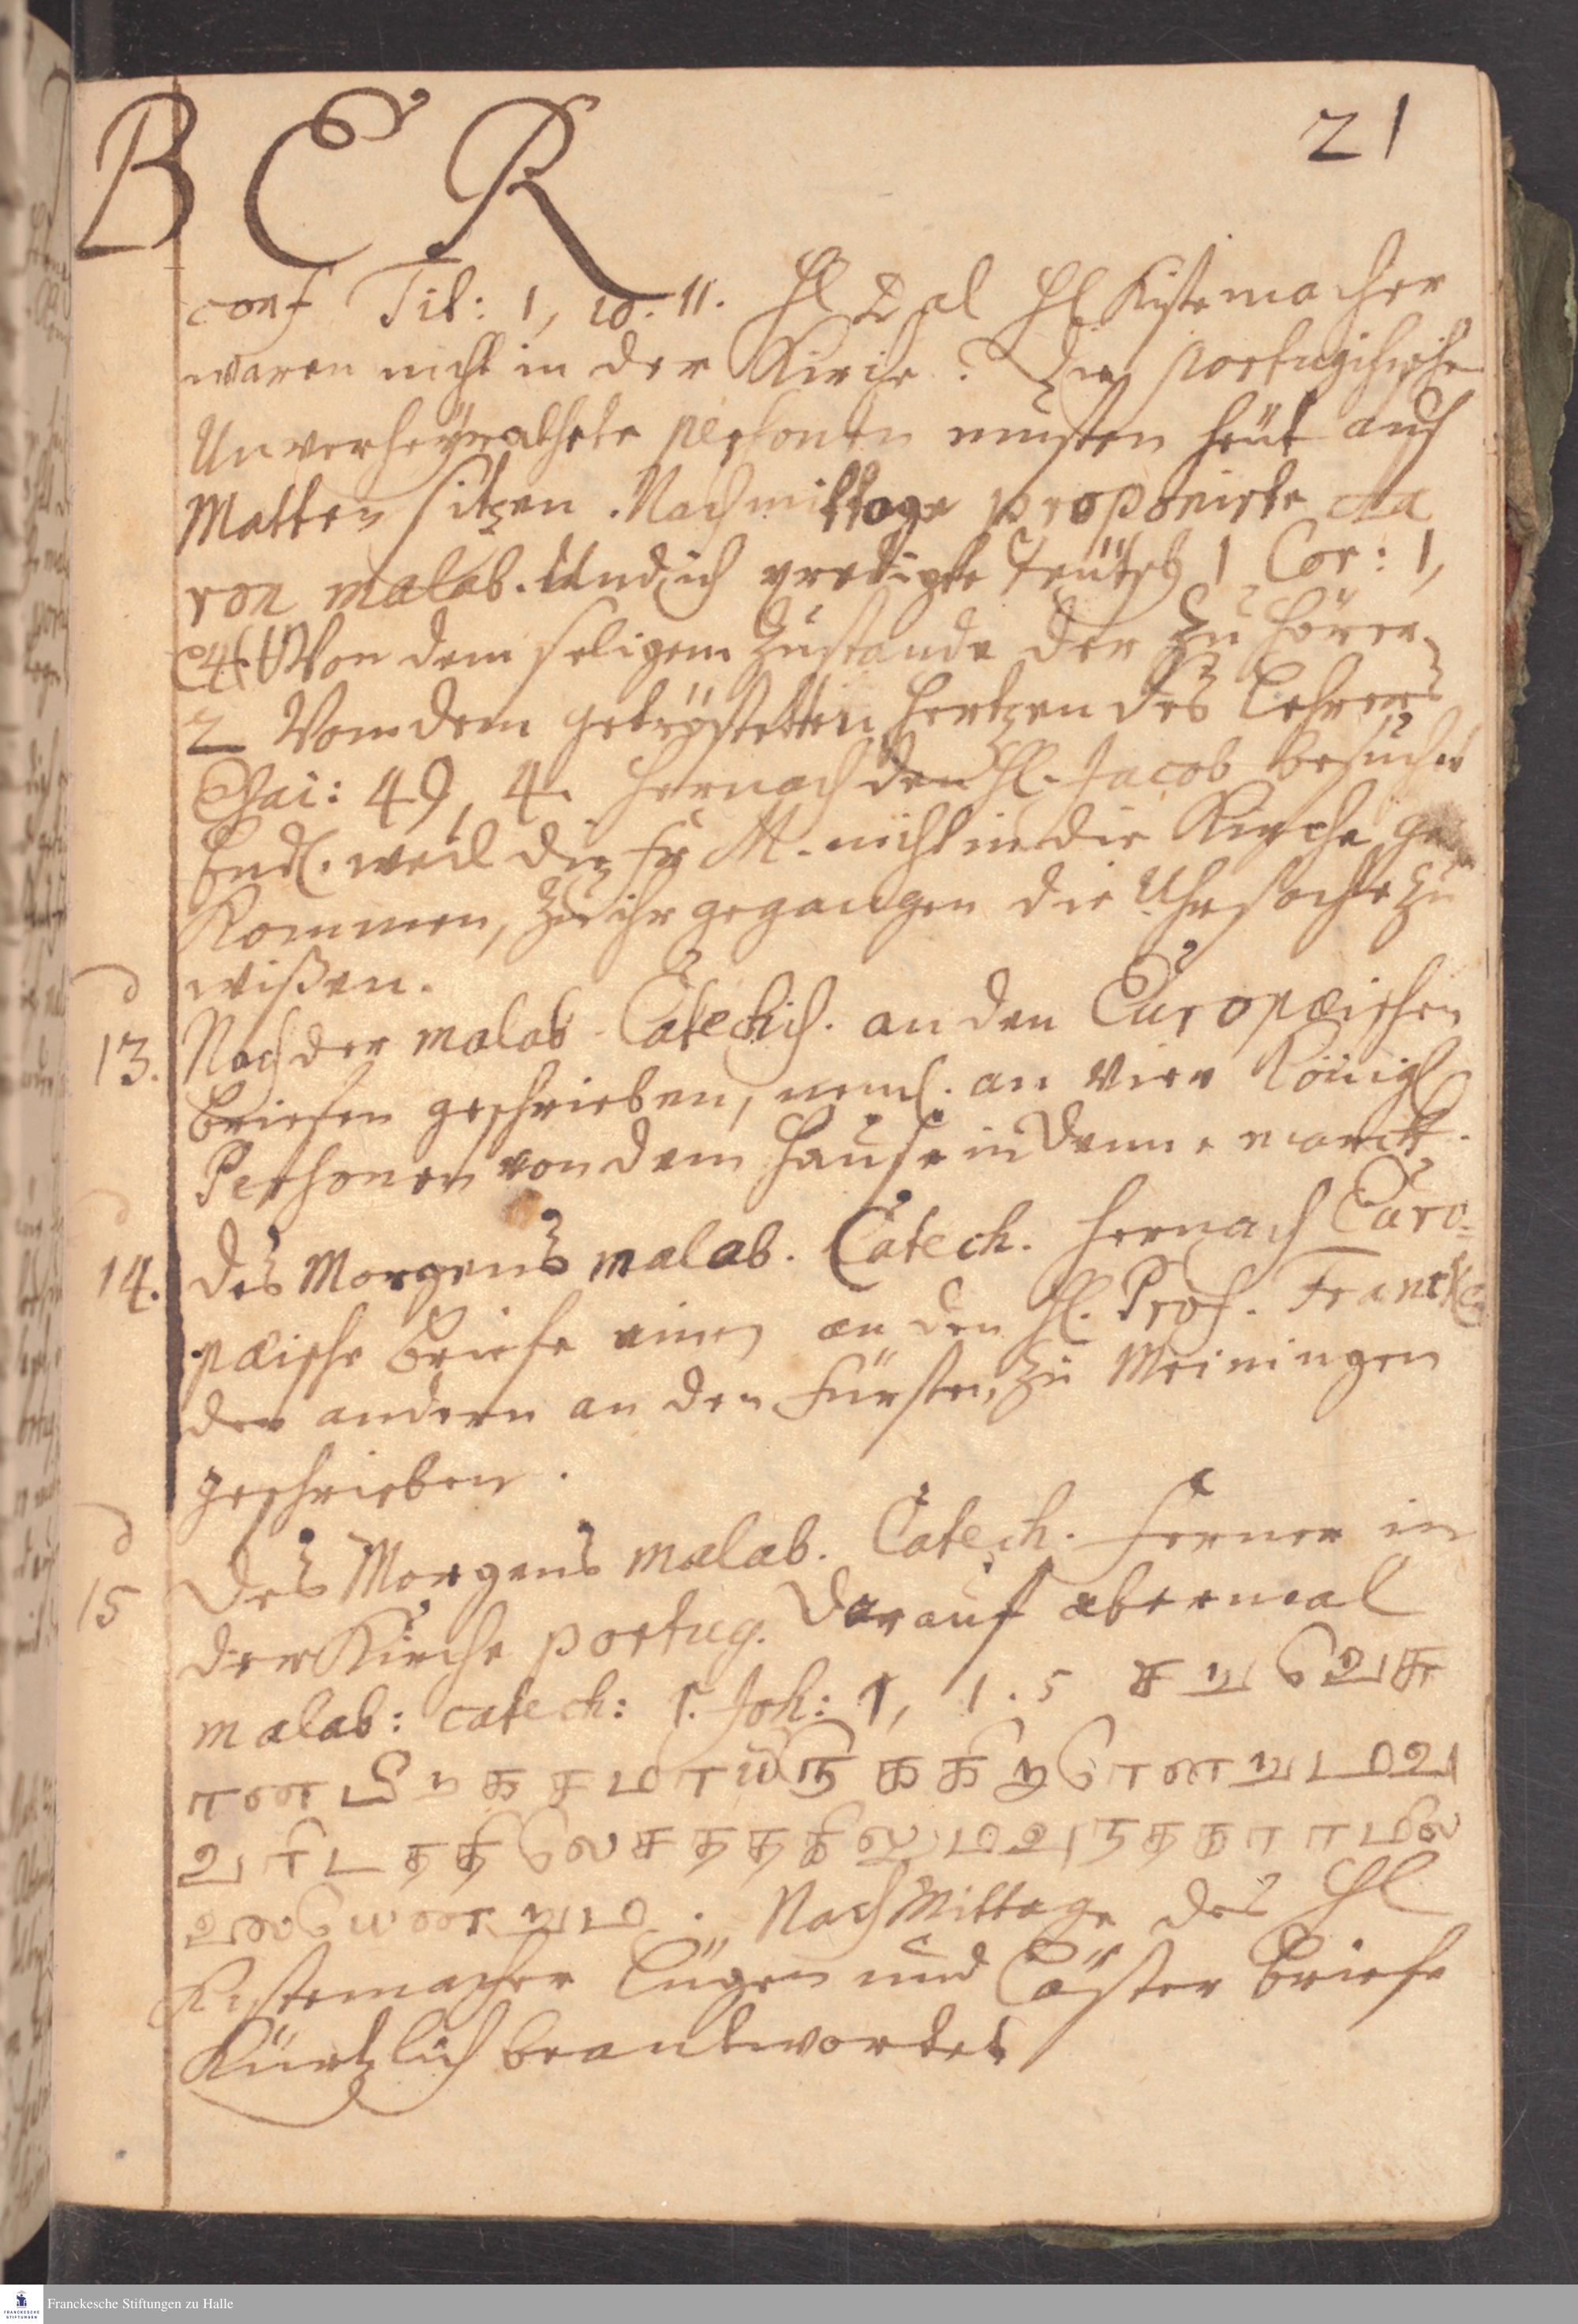 B E R 21
conf Tit: 1, 10. 11. Hl Dal Hl Kistemacher
waren nicht in der Kirche. Die portugisische
Unverheÿrathete personen musten heüt auf
Matten sitzen. Nachmittage proponirte Aa
ron malab. Und ich predigte Teütsch 1 Cor: 1,
4. Von dem seligem Zustande der Zuhörer
2 Von dem getröstetten Hertzen des Lehrers
Esai: 49, 4. Hernach den Hl. Jacob besuchet
Endl. weil die Fr M. nicht in die Kirche ge
Kommen, zu ihr gegangen die Uhrsache zu
wißen.
13. Nach der malab. Catechis. an den Europæischen
Briefen geschrieben, neml. an vier Königl
Personen von dem Hause in Dennemarck.
14. Des Morgens malab. Catech. Hernach Euro-
pæische Briefe einen an den Hl. Prof. Francken
den andern an den Fürsten zu Meiningen
geschrieben.
15 Des Morgens malab. Catech. Ferner in
der Kirche portug. Darauf abermal
malab: catech: 1. Joh: 1, 1. 5
Nach Mittage des Hl
Kistemacher Lügen und Läster Briefe
Kürtzlich beantwortet
Franckesche Stiftungen zu Halle